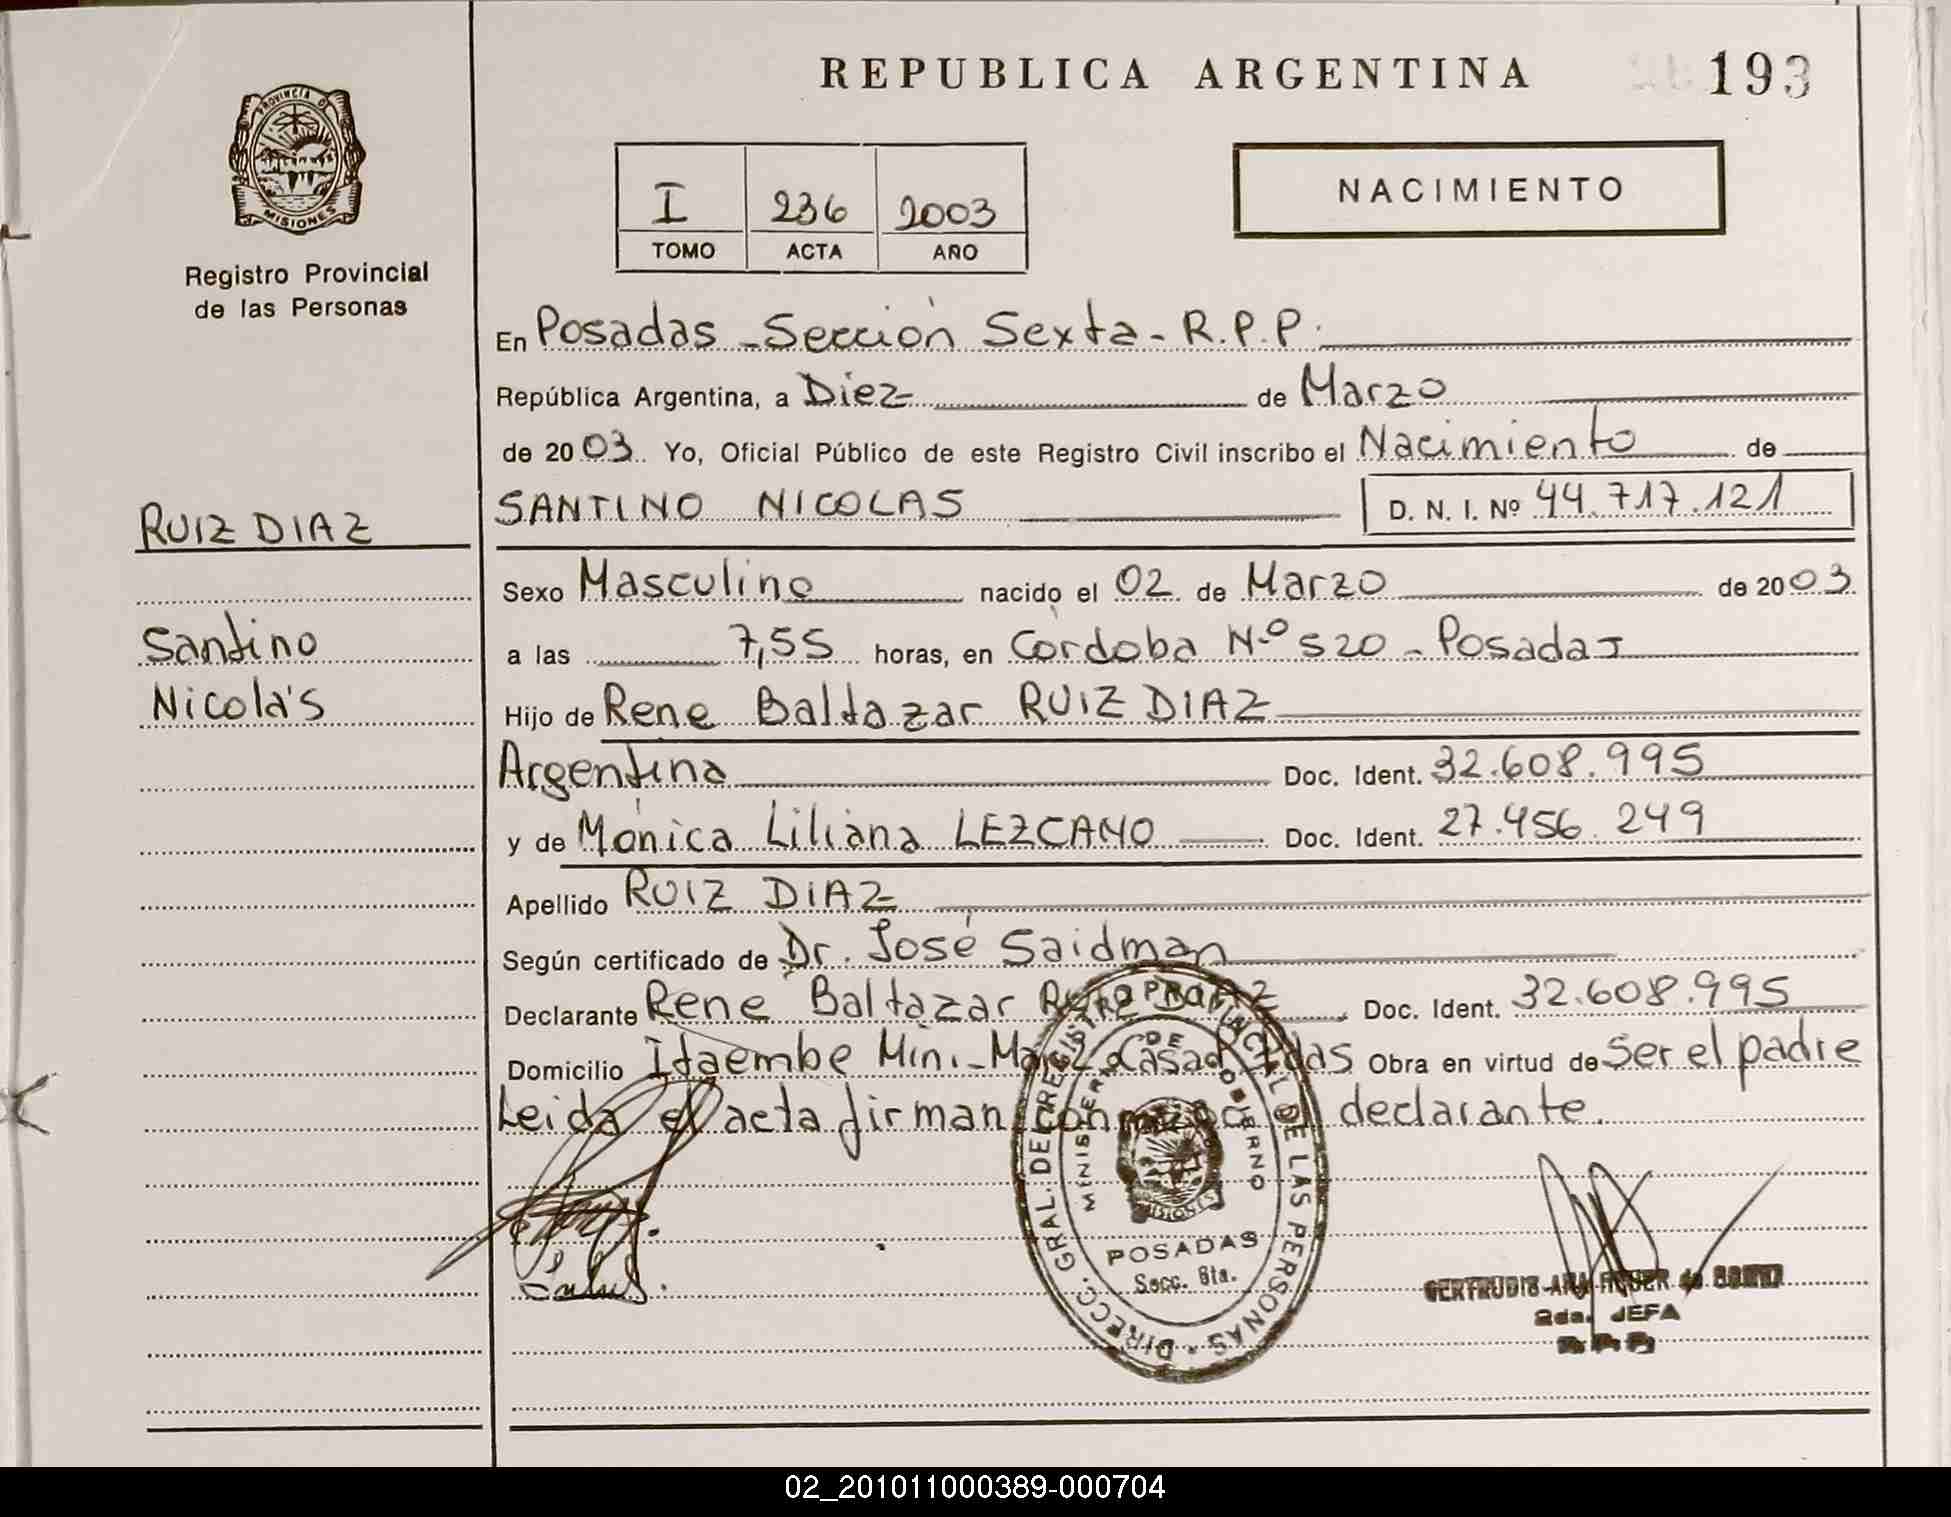 REPUBLICA ARGENTINA 193
PROVINCIA DE
MISIONES
Registro Provincial
de las Personas
I 236 2003
TOMO ACTA AÑO
NACIMIENTO
En Posadas - Sección Sexta - R.P.P.
República Argentina, a Diez de Marzo
de 2003. Yo, Oficial Público de este Registro Civil inscribo el Nacimiento de
SANTINO NICOLAS D. N. I. Nº 44.717.121
RUIZ DIAZ
Santino
Nicolás
Sexo Masculino nacido el 02 de Marzo de 2003
a las 7,55 horas, en Córdoba N.º 520 - Posadas
Hijo de Rene Baltazar RUIZ DIAZ
Argentina Doc. Ident. 32.608.995
y de Mónica Liliana LEZCANO Doc. Ident. 27.456.249
Apellido RUIZ DIAZ
Según certificado de Dr. José Saidman
Declarante Rene Baltazar Doc. Ident. 32.608.995
Domicilio Itaembe Mini - Obra en virtud de Ser el padre
Leida el acta firman conmigo el declarante.
DIRECC. GRAL. DE REGISTRO PROVINCIAL DE LAS PERSONAS
MINISTERIO DE GOBIERNO
MISIONES
POSADAS
Secc. 6ta.
GERTRUDIS ANA
2da. JEFA
02_201011000389-000704